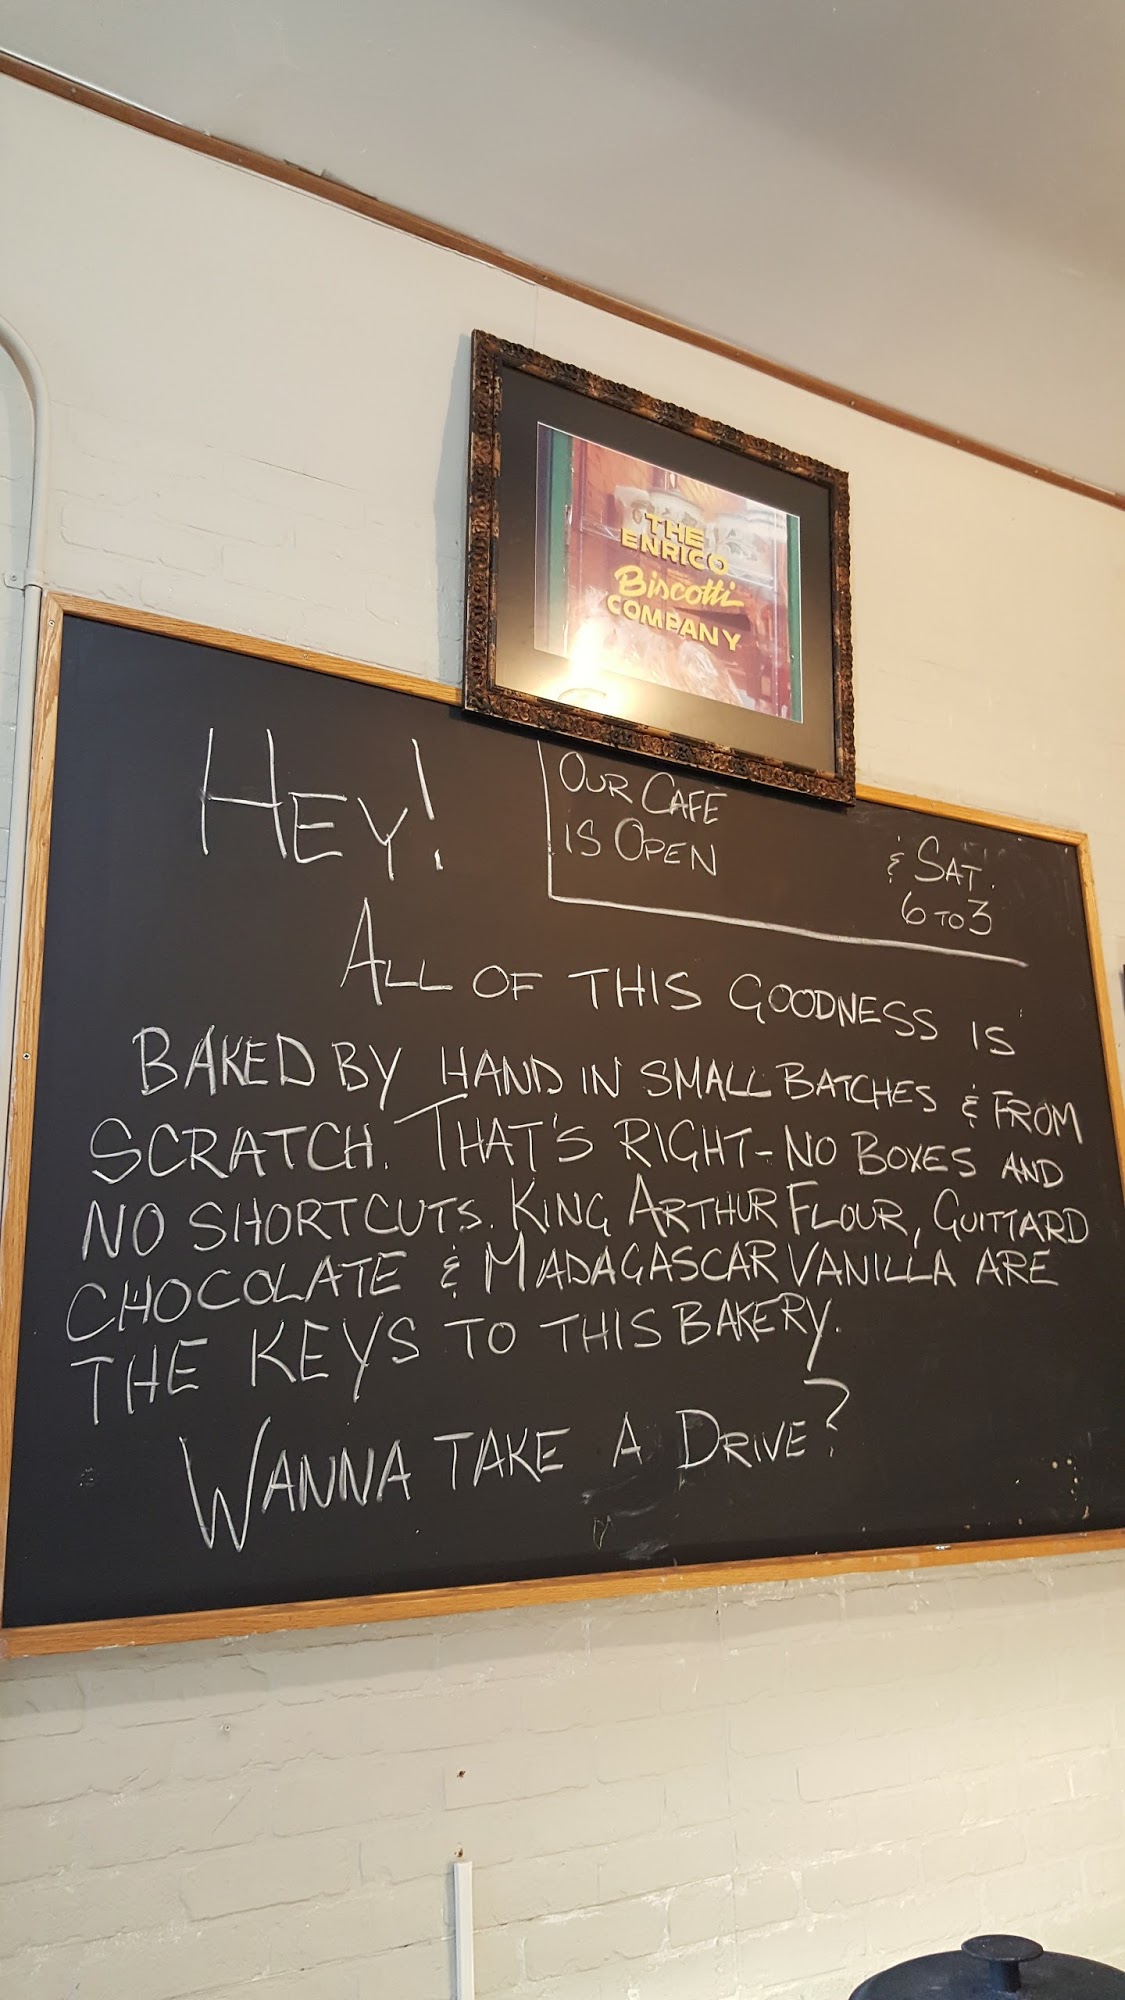 THE
ENRICO
Biscotti
COMPANY
HEY!
OUR CAFE
IS OPEN
& SAT.
6 TO 3
ALL OF THIS GOODNESS IS
BAKED BY HAND IN SMALL BATCHES & FROM
SCRATCH. THAT'S RIGHT - NO BOXES AND
NO SHORTCUTS. KING ARTHUR FLOUR, GUITTARD
CHOCOLATE & MADAGASCAR VANILLA ARE
THE KEYS TO THIS BAKERY.
WANNA TAKE A DRIVE?